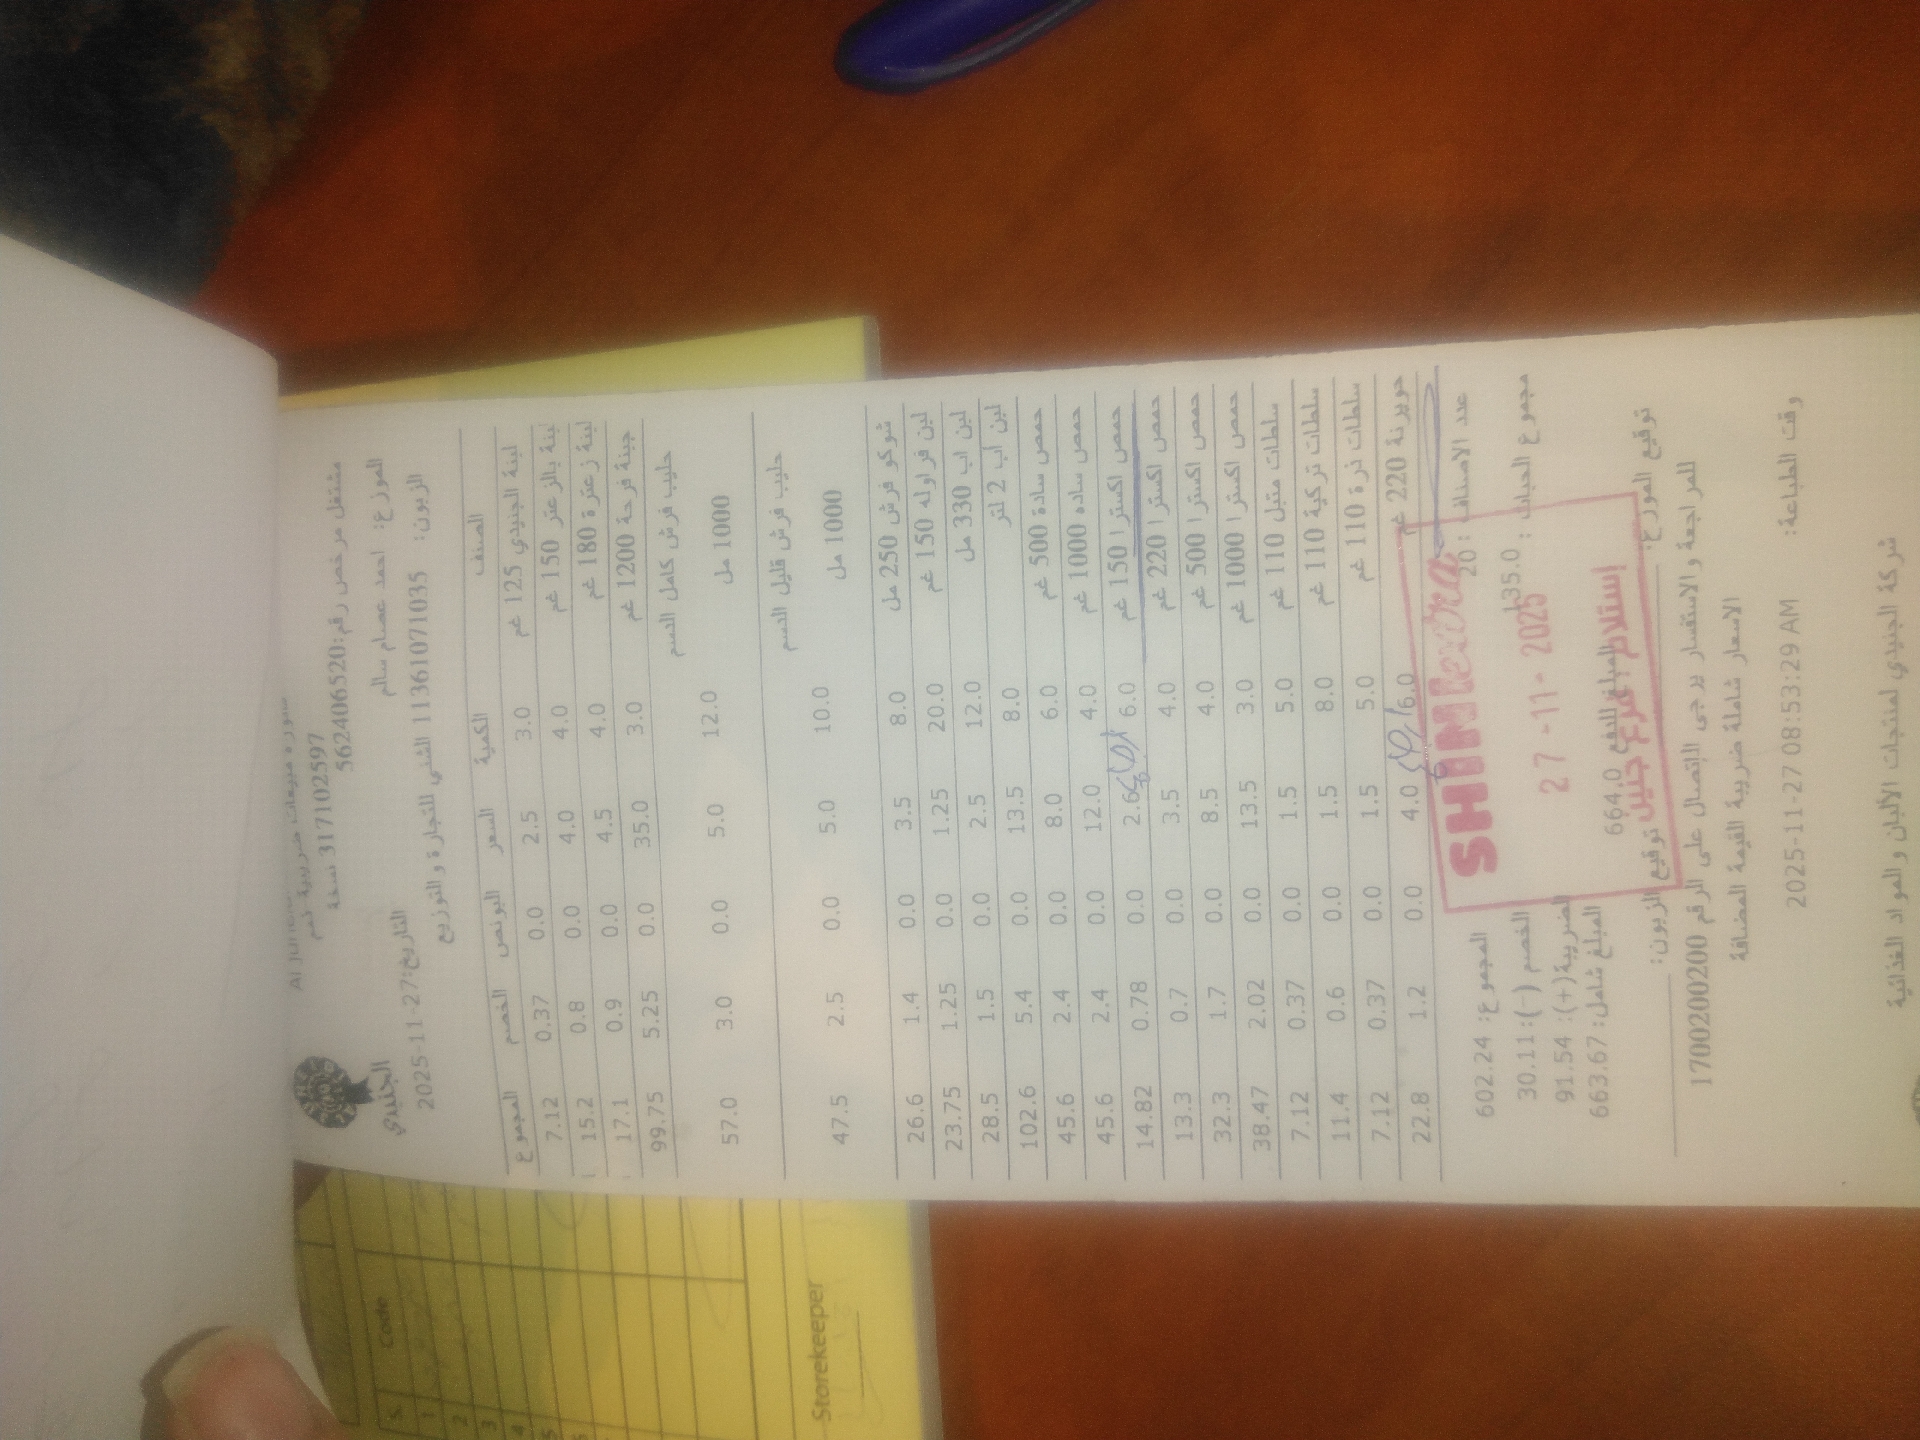 Al Juneidi
فاتورة مبيعات ضريبية رقم
3171102597 نسخة
مشتغل مرخص رقم:562406520
الموزع: احمد عصام سالم
التاريخ:27-11-2025
الزبون: 11361071035 الشني للتجارة والتوزيع
الجنيدي
الصنف الكمية السعر البونص الخصم المجموع
لبنة الجنيدي 125 غم 3.0 2.5 0.0 0.37 7.12
لبنة بالزعتر 150 غم 4.0 4.0 0.0 0.8 15.2
لبنة زعترة 180 غم 4.0 4.5 0.0 0.9 17.1
جبنة فرحة 1200 غم 3.0 35.0 0.0 5.25 99.75
حليب فرش كامل الدسم
1000 مل 12.0 5.0 0.0 3.0 57.0
حليب فرش قليل الدسم
1000 مل 10.0 5.0 0.0 2.5 47.5
شوكو فرش 250 مل 8.0 3.5 0.0 1.4 26.6
لبن فراوله 150 غم 20.0 1.25 0.0 1.25 23.75
لبن اب 330 مل 12.0 2.5 0.0 1.5 28.5
لبن اب 2 لتر 8.0 13.5 0.0 5.4 102.6
حمص سادة 500 غم 6.0 8.0 0.0 2.4 45.6
حمص ساده 1000 غم 4.0 12.0 0.0 2.4 45.6
حمص اكسترا 150 غم 6.0 2.6 0.0 0.78 14.82
حمص اكسترا 220 غم 4.0 3.5 0.0 0.7 13.3
حمص اكسترا 500 غم 4.0 8.5 0.0 1.7 32.3
حمص اكسترا 1000 غم 3.0 13.5 0.0 2.02 38.47
سلطات متبل 110 غم 5.0 1.5 0.0 0.37 7.12
سلطات تركية 110 غم 8.0 1.5 0.0 0.6 11.4
سلطات ذرة 110 غم 5.0 1.5 0.0 0.37 7.12
حويرنة 220 غم 6.0 4.0 0.0 1.2 22.8
عدد الاصناف : 20 المجموع: 602.24
SHINI extra
مجموع الحبات : 135.0 الخصم (-): 30.11
27 -11- 2025
الضريبة(+): 91.54
المبلغ للدفع 664.0 المبلغ شامل: 663.67
إستلام فرع جنين
توقيع الموزع: توقيع الزبون:
للمراجعة والاستفسار يرجى الاتصال على الرقم 1700200200
الاسعار شاملة ضريبة القيمة المضافة
وقت الطباعة: 2025-11-27 08:53:29 AM
شركة الجنيدي لمنتجات الالبان والمواد الغذائية
Code
S.
1
2
3
4
5
6
Storekeeper